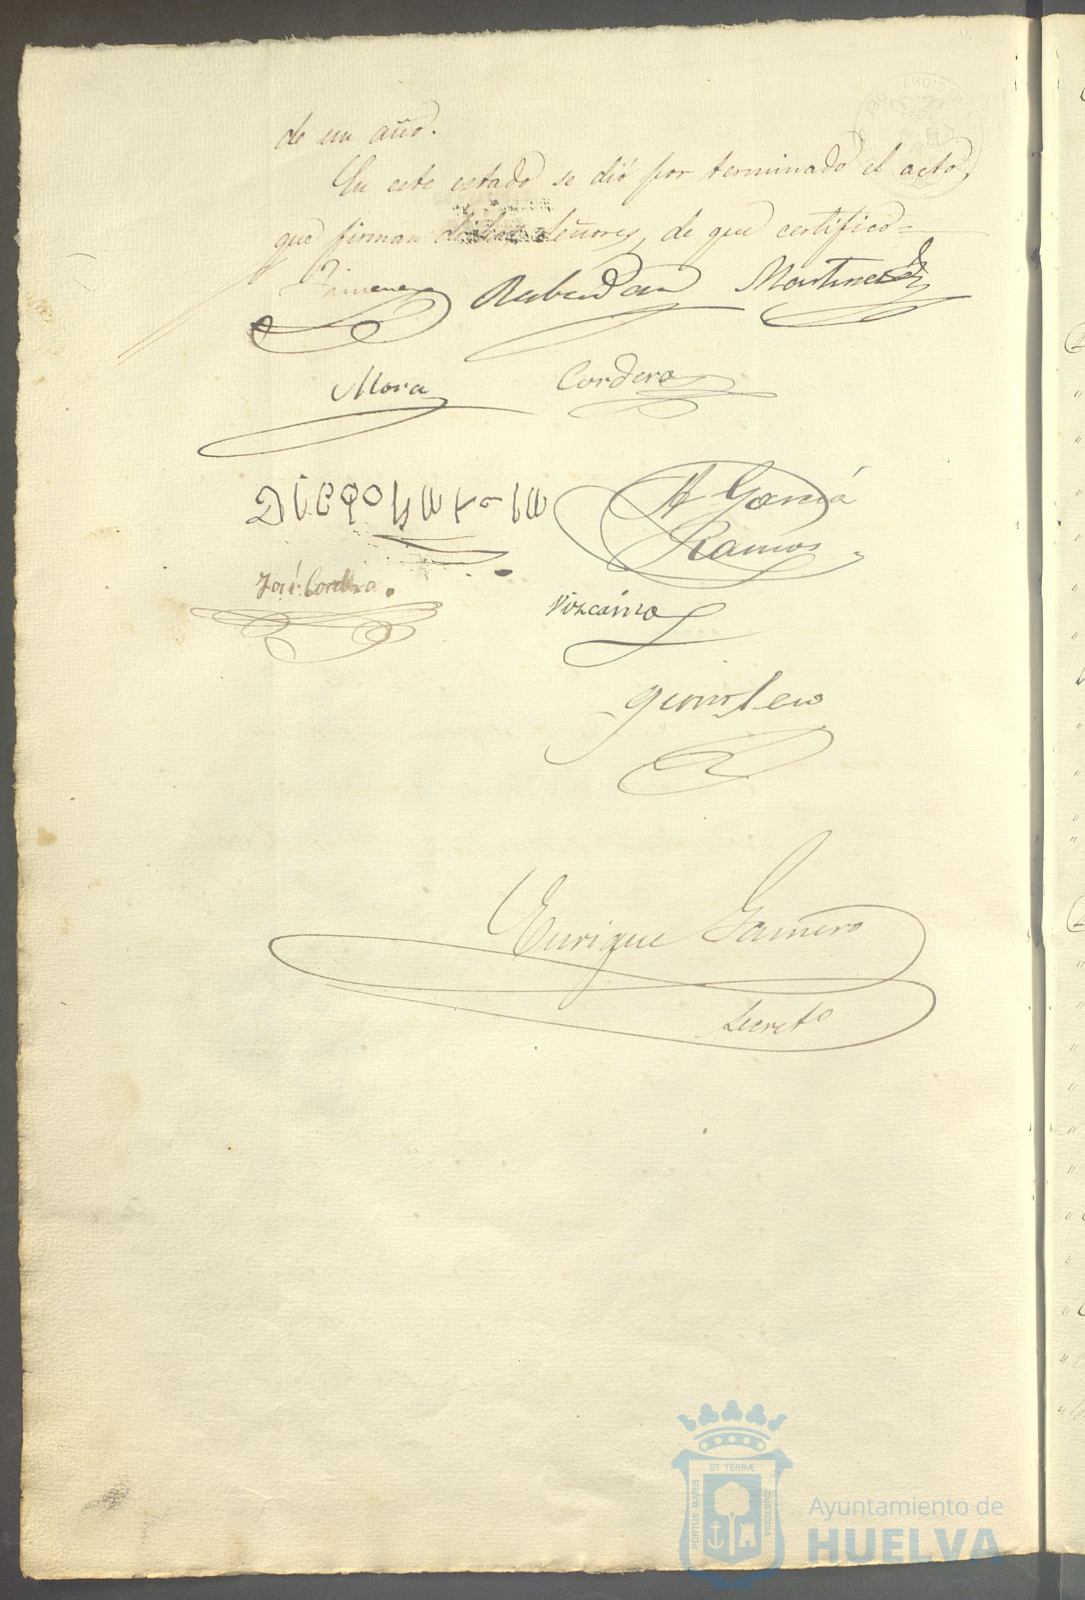 de un año.
En este estado se dió por terminado el acto,
que firman dichos Señores, de que certifico=
Jimenez Rabadan Martinez
Mora Cordero
A Garcia
Ramos
José Cordero.
Vizcaino
Enrique Gamero
Secretº
ET TERRÆ
PORTUS MARIS
CUSTODIA
Ayuntamiento de
HUELVA